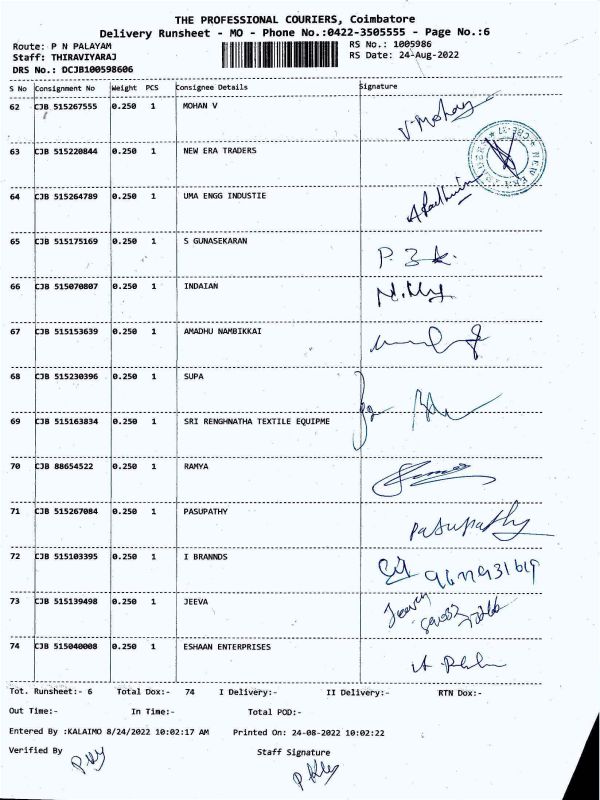 THE PROFESSIONAL COURIERS, Coimbatore
Delivery Runsheet - MO - Phone No.:0422-3505555 - Page No.:6
Route: P N PALAYAM RS No.: 1005986
Staff: THIRAVIYARAJ RS Date: 24-Aug-2022
DRS No.: DCJB100598606
S No Consignment No Weight PCS Consignee Details Signature
62 CJB 515267555 0.250 1 MOHAN V V.Mohan
63 CJB 515220844 0.250 1 NEW ERA TRADERS
64 CJB 515264789 0.250 1 UMA ENGG INDUSTIE
65 CJB 515175169 0.250 1 S GUNASEKARAN
66 CJB 515070807 0.250 1 INDAIAN
67 CJB 515153639 0.250 1 AMADHU NAMBIKKAI
68 CJB 515230396 0.250 1 SUPA
69 CJB 515163834 0.250 1 SRI RENGHNATHA TEXTILE EQUIPME
70 CJB 88654522 0.250 1 RAMYA
71 CJB 515267084 0.250 1 PASUPATHY Pasupathy
72 CJB 515103395 0.250 1 I BRANNDS
73 CJB 515139498 0.250 1 JEEVA
74 CJB 515040008 0.250 1 ESHAAN ENTERPRISES
Tot. Runsheet:- 6 Total Dox:- 74 I Delivery:- II Delivery:- RTN Dox:-
Out Time:- In Time:- Total POD:-
Entered By :KALAIMO 8/24/2022 10:02:17 AM Printed On: 24-08-2022 10:02:22
Verified By Staff Signature